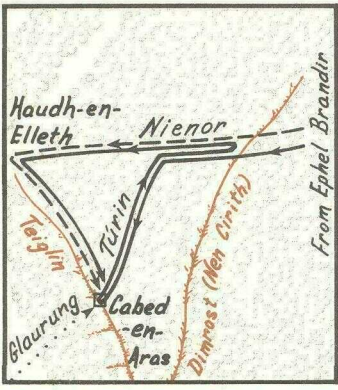 Haudh-en-
Elleth
Nienor
From Ephel Brandir
Túrin
Teiglin
Dimrost (Nen Cirith)
Glaurung
Cabed
-en-
Aras